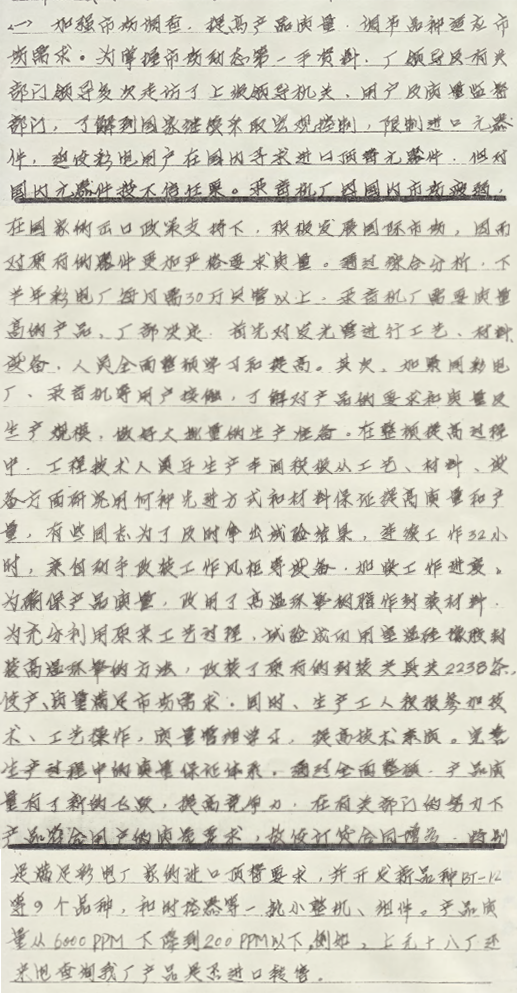 (一) 加强市场调查，提高产品质量，调节品种适应市
场需求。为掌握市场动态第一手资料，厂领导及有关
部门领导多次走访了上级领导机关、用户及质量监督
部门，了解到国家继续采取宏观控制，限制进口元器
件，迫使彩电用户在国内寻求进口顶替元器件，但对
国内元器件技术信任
在国家的出口政策支持下，积极发展国际市场，因而
对原有的器件更加严格要求质量。通过综合分析，下
半年彩电厂每月需30万只管以上，录音机厂需要质量
高的产品。厂部决定，首先对发光管进行工艺、材料
设备、人员全面整顿学习和提高。其次，加紧同彩电
厂、录音机等用户接触，了解对产品的要求和质量及
生产规模，做好大批量的生产准备。在整顿提高过程
中，工程技术人员与生产车间积极从工艺、材料、设
备方面研究用何种先进方式和材料保证提高质量和产
量，有些同志为了及时拿出试验结果，连续工作32小
时，亲自动手改装工作风柜等设备，加快工作进度。
为确保产品质量，改用了高温环氧树脂作封装材料，
为充分利用原来工艺过程，试验成功用室温硅橡胶封
装高温环氧的方法，改装了原有的封装夹具共2238条，
使产、质量满足市场需求。同时、生产工人积极参加技
术、工艺操作，质量管理学习，提高技术素质。完善
生产过程中的质量保证体系。通过全面整顿，产品质
量有了新的飞跃，提高竞争力，在有关部门的努力下
产品符合用户的质量要求，故使订货合同增多，特别
是满足彩电厂家的进口顶替要求，并开发新品种BT-12
等9个品种，和时控器等一批小整机、组件。产品质
量从6000PPM下降到200PPM以下，例如，上无十八厂还
来电查询我厂产品是否进口散管。